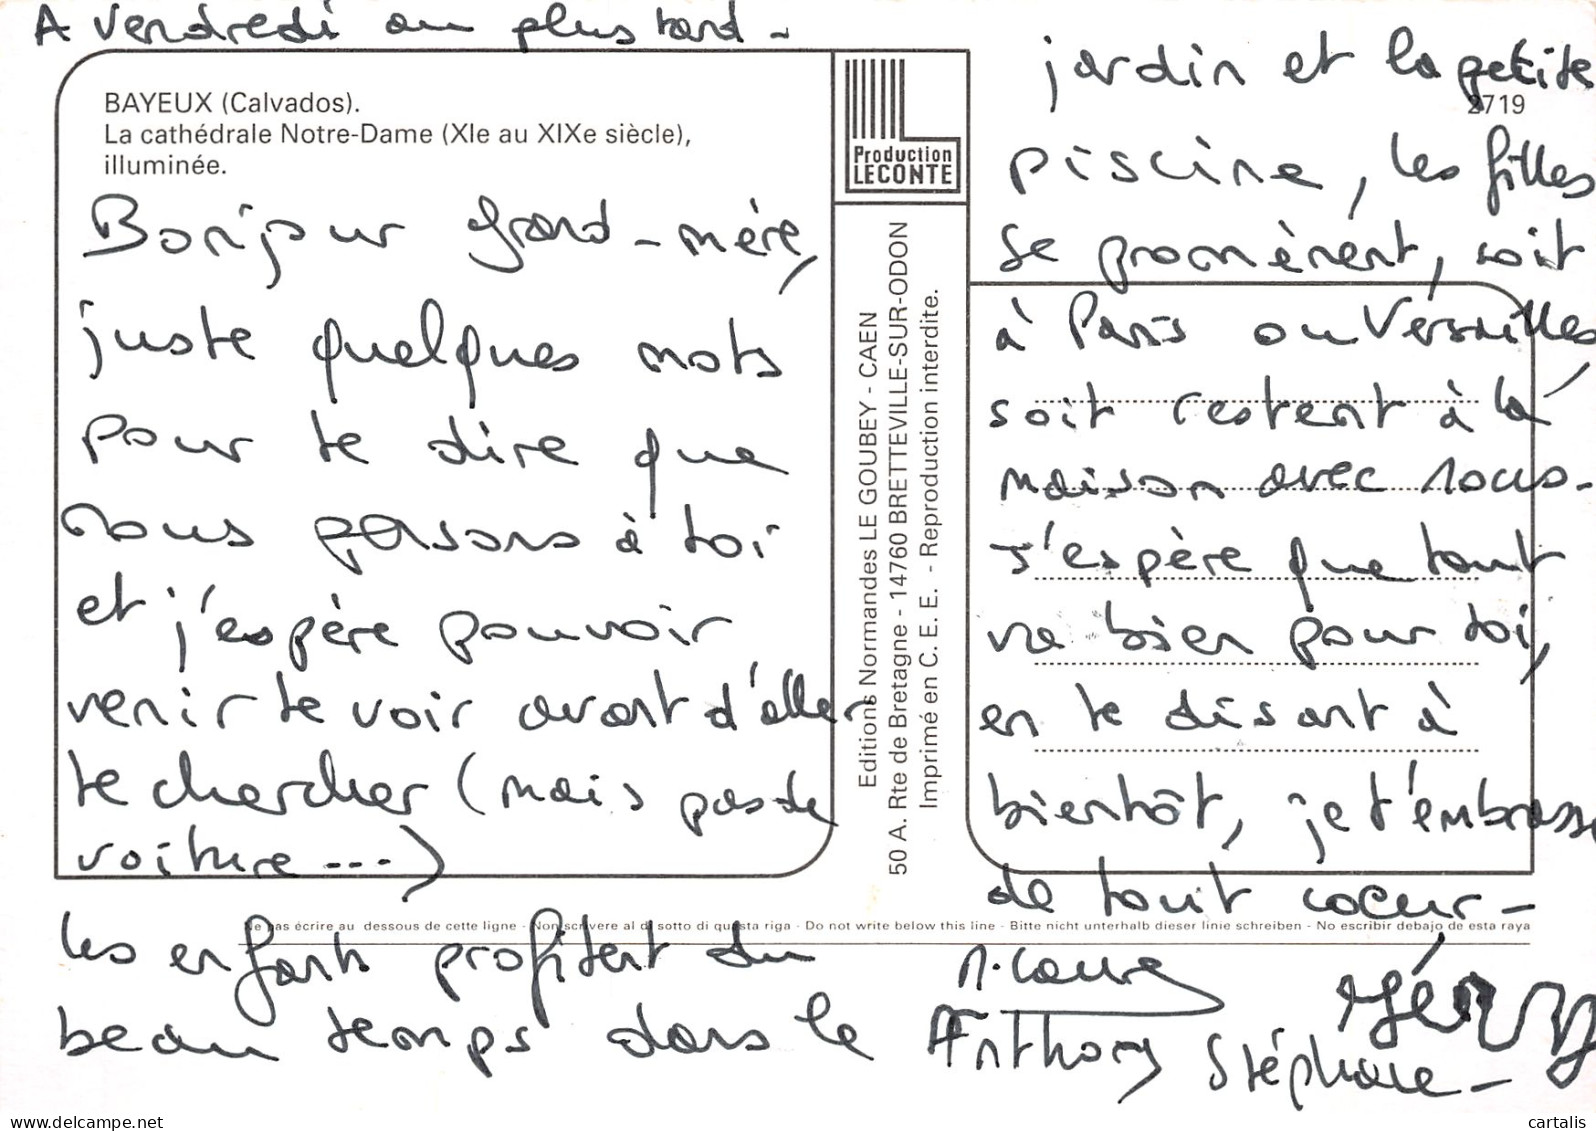 A vendredi au plus tard -
BAYEUX (Calvados).
La cathédrale Notre-Dame (XIe au XIXe siècle),
illuminée.
Bonjour grand-mère,
juste quelques mots
pour te dire que
nous pensons à toi
et j'espère pouvoir
venir te voir avant d'aller
te chercher (mais pas de
voiture ---)
les enfants profitent du
beau temps dans le
Production
LECONTE
Editions Normandes LE GOUBEY - CAEN
50 A. Rte de Bretagne - 14760 BRETTEVILLE-SUR-ODON
Imprimé en C. E. E. - Reproduction interdite.
2719
jardin et la petite
piscine, les filles
se promènent, soit
à Paris ou Versailles,
soit restent à la
maison avec nous.
J'espère que tout
va bien pour toi,
en te disant à
bientôt, je t'embrasse
de tout coeur -
Ne pas écrire au dessous de cette ligne - Non scrivere al di sotto di questa riga - Do not write below this line - Bitte nicht unterhalb dieser linie schreiben - No escribir debajo de esta raya
Anthony Stéphane -
www.delcampe.net
cartalis